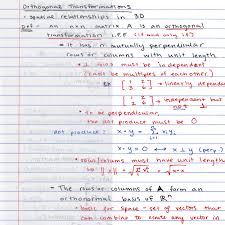 Orthogonal Transformations
- spacial relationships in 3D
Def - an nxn matrix A is an orthogonal
transformation IFF (if and only if)
• It has n mutually perpendicular
rows or columns with unit length
* 2 rows must be independent
(not be multiples of each other)
ex [1 2 3 6] → linearly dependent
[1 2 2 2] → independent but not ⊥
→ to be perpendicular,
the dot product must be 0
dot product: x·y = Σ xi yi
x·y = 0 ↔ x ⊥ y (perp.)
• rows/columns must have unit length
‖x‖ = √ Σ xi² = √x·x
- The rows or columns of A form an
orthonormal basis of ℝⁿ
• basis for space - set of vectors that
can combine to create any vector in